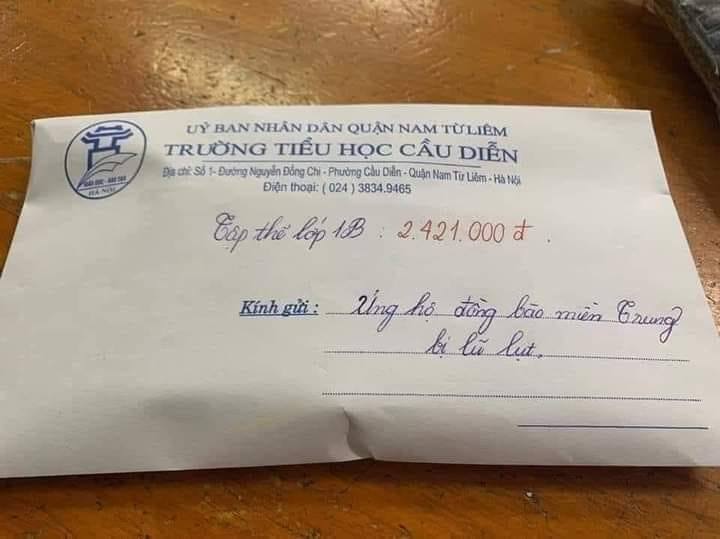 UỶ BAN NHÂN DÂN QUẬN NAM TỪ LIÊM
TRƯỜNG TIỂU HỌC CẦU DIỄN
Địa chỉ: Số 1- Đường Nguyễn Đổng Chi - Phường Cầu Diễn - Quận Nam Từ Liêm - Hà Nội
Điện thoại: ( 024 ) 3834.9465
GIÁO DỤC - ĐÀO TẠO
HÀ NỘI
Tập thể lớp 1B : 2.421.000 đ.
Kính gửi : Ủng hộ đồng bào miền Trung
bị lũ lụt.